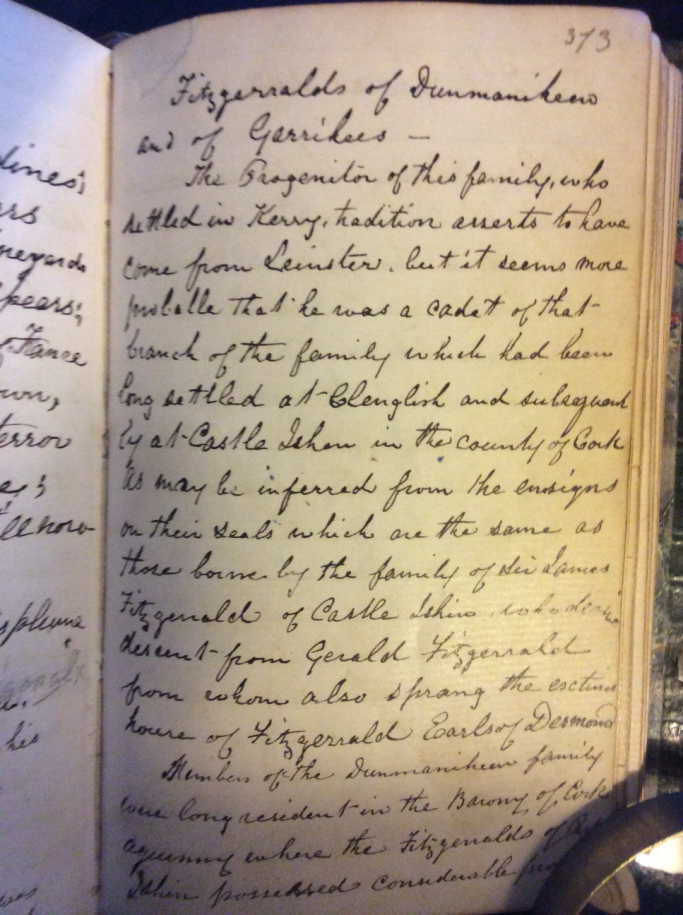 373
Fitzgerralds of Dunmanikeen
and of Garrikees —
The Progenitor of this family, who
settled in Kerry, tradition asserts to have
come from Leinster, but it seems more
probable that he was a cadett of that
branch of the family which had been
long settled at Clenglish and subsequent
ly at Castle Ishen in the county of Cork
as may be inferred from the ensigns
on their seals which are the same as
those borne by the family of Sir James
Fitzgerrald of Castle Ishin, who
descent from Gerald Fitzgerrald
from whom also sprang the
house of Fitzgerrald Earls of Desmond
Members of the Dunmanikeen family
were long resident in the Barony of Cork
aguinny where the Fitzgerralds of
Ishin possessed considerable
dines;
ers
ineyards
pears;
France
own,
terror
ll now
plume
his